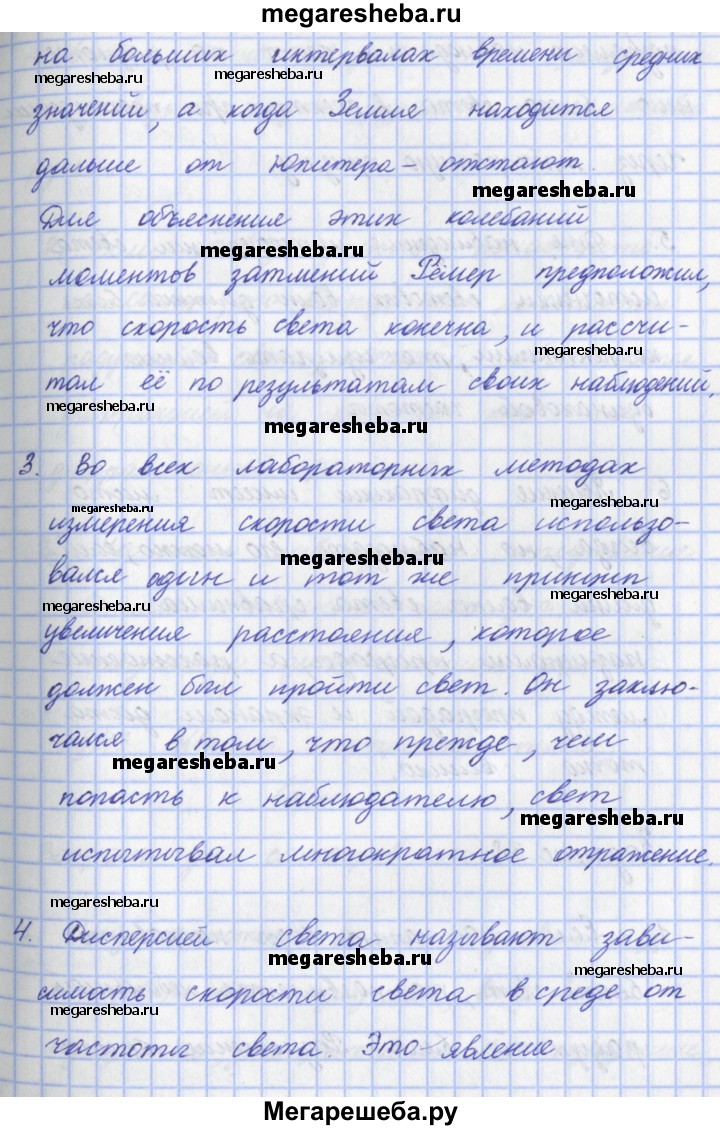 megaresheba.ru
на больших интервалах времени средних
megaresheba.ru megaresheba.ru
значений, а когда Земля находится
дальше от Юпитера – отстают.
megaresheba.ru
Для объяснения этих колебаний
megaresheba.ru
моментов затмений Рёмер предположил,
что скорость света конечна, и рассчи-
megaresheba.ru
тал её по результатам своих наблюдений.
megaresheba.ru
megaresheba.ru
3. Во всех лабораторных методах
megaresheba.ru
megaresheba.ru
измерения скорости света использо-
megaresheba.ru
вался один и тот же принцип
megaresheba.ru megaresheba.ru
увеличения расстояния, которое
должен был пройти свет. Он заклю-
чался в том, что прежде, чем
megaresheba.ru
попасть к наблюдателю, свет
megaresheba.ru
испытывал многократное отражение.
megaresheba.ru
4. Дисперсией света называют зави-
megaresheba.ru
megaresheba.ru
симость скорости света в среде от
megaresheba.ru
частоты света. Это – явление
megaresheba.ru
Мегарешеба.ру